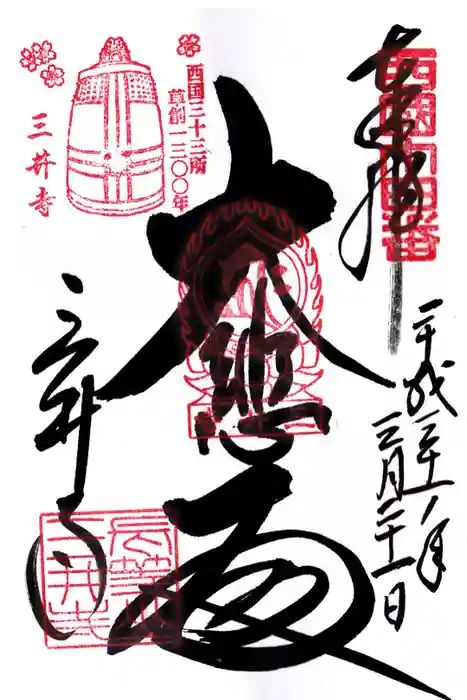 奉拝
西國十四番
平成三十一年
三月二十一日
大悲殿
三井寺
西国三十三所
草創一三〇〇年
三井寺